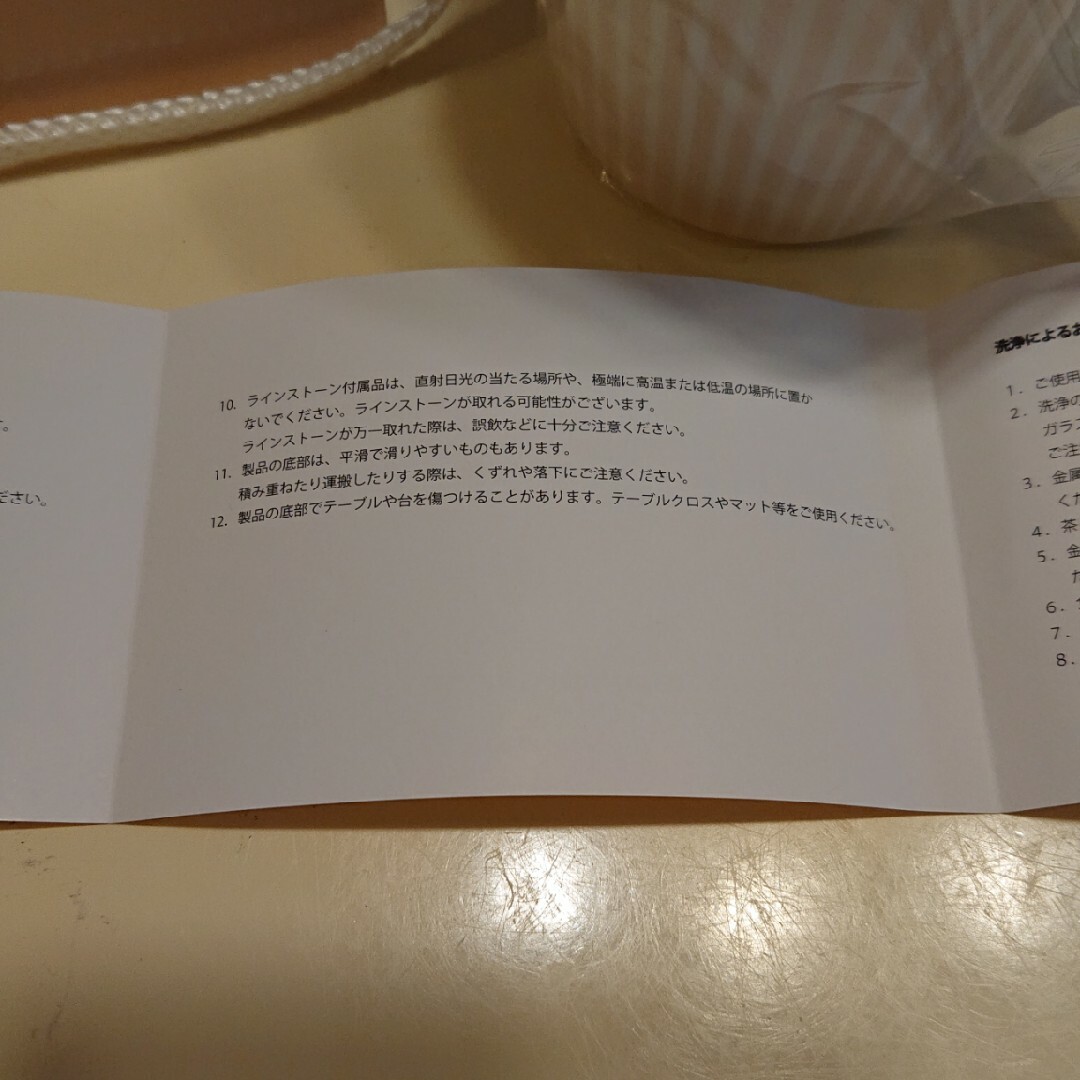 す。
ださい。
10. ラインストーン付属品は、直射日光の当たる場所や、極端に高温または低温の場所に置か
ないでください。ラインストーンが取れる可能性がございます。
ラインストーンが万一取れた際は、誤飲などに十分ご注意ください。
11. 製品の底部は、平滑で滑りやすいものもあります。
積み重ねたり運搬したりする際は、くずれや落下にご注意ください。
12. 製品の底部でテーブルや台を傷つけることがあります。テーブルクロスやマット等をご使用ください。
洗浄によるお
1. ご使用
2. 洗浄の
ガラス
ご注
3. 金属
くだ
4. 茶
5. 金
6.
7.
8.